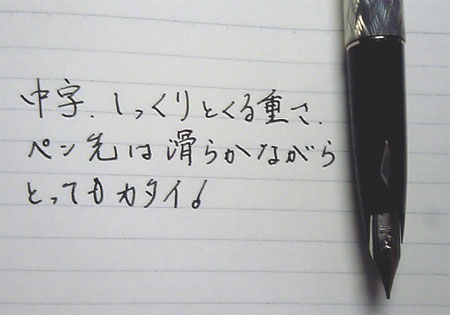 中字.しっくりとくる重さ.
ペン先は滑らかながら
とってもカタイ!